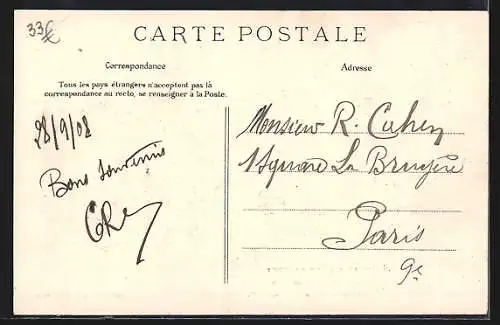 33
CARTE POSTALE
Correspondance
Adresse
Tous les pays étrangers n'acceptent pas la
correspondance au recto, se renseigner à la Poste.
28/9/08
Bons souvenirs
Monsieur R. Cahen
1 Square La Bruyère
Paris
9e